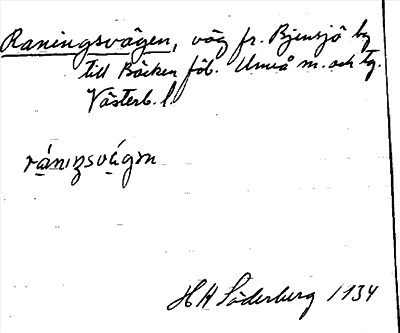 Raningsvägen, väg fr. Bjensjö by
till Bäcken föb. Umeå m. och tg.
Västerb. l.
ránıŋsvágɘn
H H Söderberg 1934